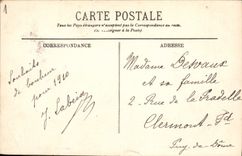 CARTE POSTALE
Tous les Pays étrangers n'acceptent pas la Correspondance au recto
(Se renseigner à la Poste)
CORRESPONDANCE
ADRESSE
Souhaits
de bonheur
pour 1910
Madame Devaux
et sa famille
2 - Rue de la Pradelle
Clermont - Fd
Puy-de-Dôme